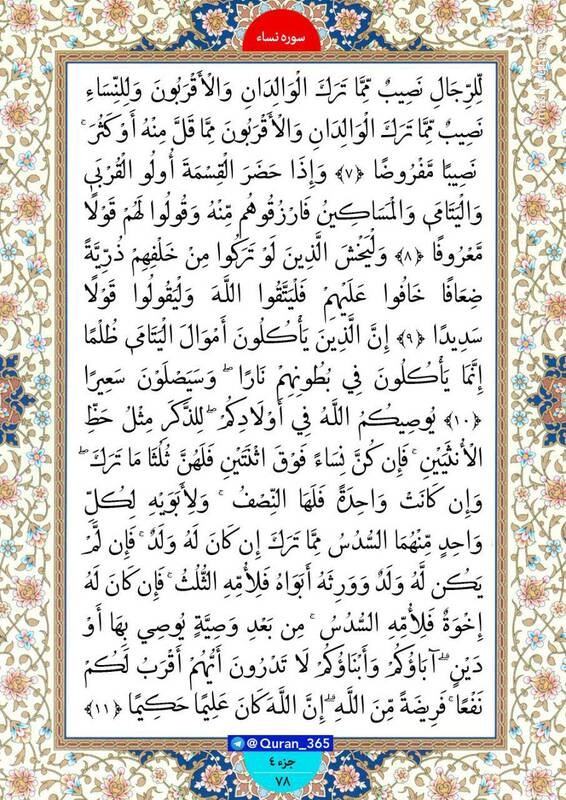 سوره نساء
لِّلرِّجَالِ نَصِيبٌ مِّمَّا تَرَكَ الْوَالِدَانِ وَالْأَقْرَبُونَ وَلِلنِّسَاءِ
نَصِيبٌ مِّمَّا تَرَكَ الْوَالِدَانِ وَالْأَقْرَبُونَ مِمَّا قَلَّ مِنْهُ أَوْ كَثُرَ ۚ
نَصِيبًا مَّفْرُوضًا ﴿٧﴾ وَإِذَا حَضَرَ الْقِسْمَةَ أُولُو الْقُرْبَىٰ
وَالْيَتَامَىٰ وَالْمَسَاكِينُ فَارْزُقُوهُم مِّنْهُ وَقُولُوا لَهُمْ قَوْلًا
مَّعْرُوفًا ﴿٨﴾ وَلْيَخْشَ الَّذِينَ لَوْ تَرَكُوا مِنْ خَلْفِهِمْ ذُرِّيَّةً
ضِعَافًا خَافُوا عَلَيْهِمْ فَلْيَتَّقُوا اللَّهَ وَلْيَقُولُوا قَوْلًا
سَدِيدًا ﴿٩﴾ إِنَّ الَّذِينَ يَأْكُلُونَ أَمْوَالَ الْيَتَامَىٰ ظُلْمًا
إِنَّمَا يَأْكُلُونَ فِي بُطُونِهِمْ نَارًا ۖ وَسَيَصْلَوْنَ سَعِيرًا
﴿١٠﴾ يُوصِيكُمُ اللَّهُ فِي أَوْلَادِكُمْ ۖ لِلذَّكَرِ مِثْلُ حَظِّ
الْأُنثَيَيْنِ ۚ فَإِن كُنَّ نِسَاءً فَوْقَ اثْنَتَيْنِ فَلَهُنَّ ثُلُثَا مَا تَرَكَ ۖ
وَإِن كَانَتْ وَاحِدَةً فَلَهَا النِّصْفُ ۚ وَلِأَبَوَيْهِ لِكُلِّ
وَاحِدٍ مِّنْهُمَا السُّدُسُ مِمَّا تَرَكَ إِن كَانَ لَهُ وَلَدٌ ۚ فَإِن لَّمْ
يَكُن لَّهُ وَلَدٌ وَوَرِثَهُ أَبَوَاهُ فَلِأُمِّهِ الثُّلُثُ ۚ فَإِن كَانَ لَهُ
إِخْوَةٌ فَلِأُمِّهِ السُّدُسُ ۚ مِن بَعْدِ وَصِيَّةٍ يُوصِي بِهَا أَوْ
دَيْنٍ ۗ آبَاؤُكُمْ وَأَبْنَاؤُكُمْ لَا تَدْرُونَ أَيُّهُمْ أَقْرَبُ لَكُمْ
نَفْعًا ۚ فَرِيضَةً مِّنَ اللَّهِ ۗ إِنَّ اللَّهَ كَانَ عَلِيمًا حَكِيمًا ﴿١١﴾
@Quran_365
جزء ٤
٧٨